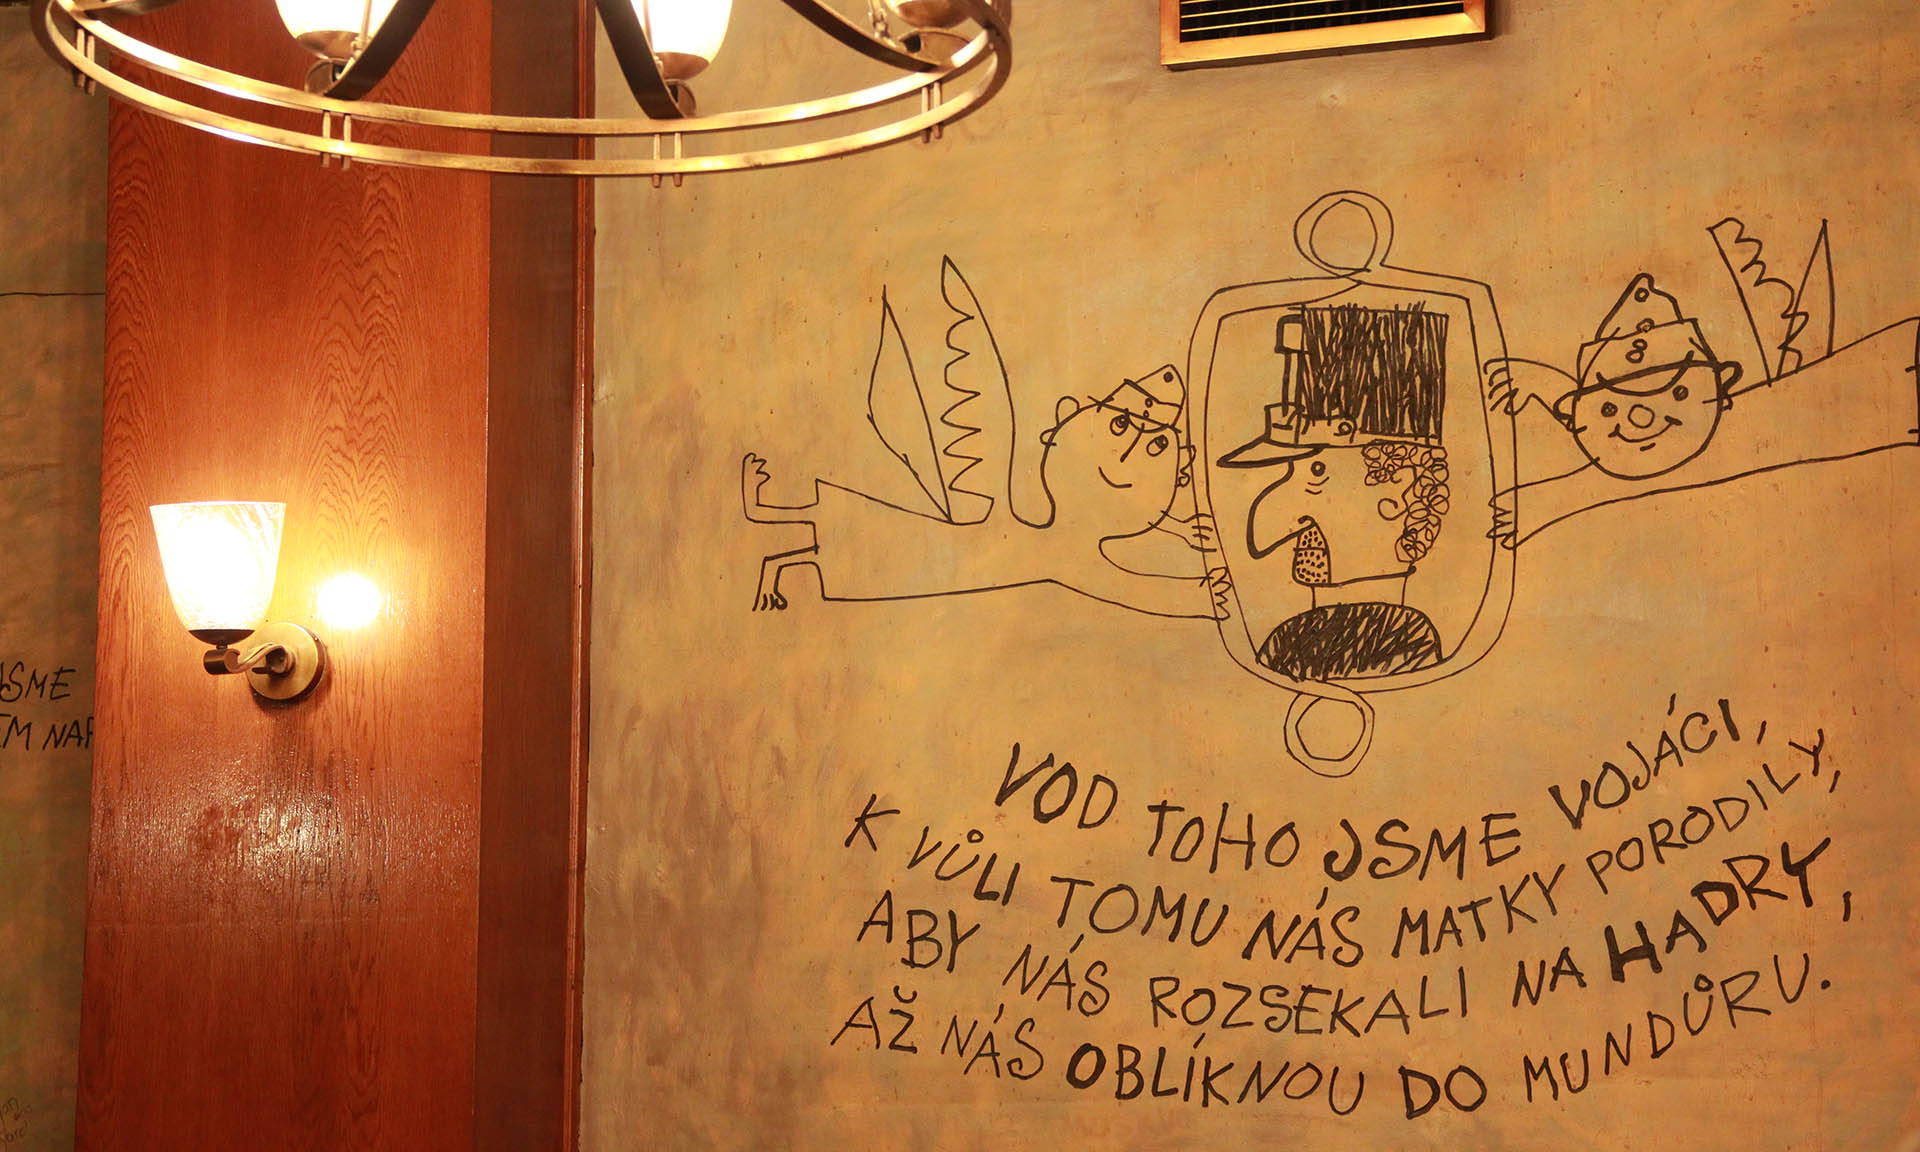 VOD TOHO JSME VOJÁCI,
K VŮLI TOMU NÁS MATKY PORODILY,
ABY NÁS ROZSEKALI NA HADRY,
AŽ NÁS OBLÍKNOU DO MUNDŮRU.
JSME
8